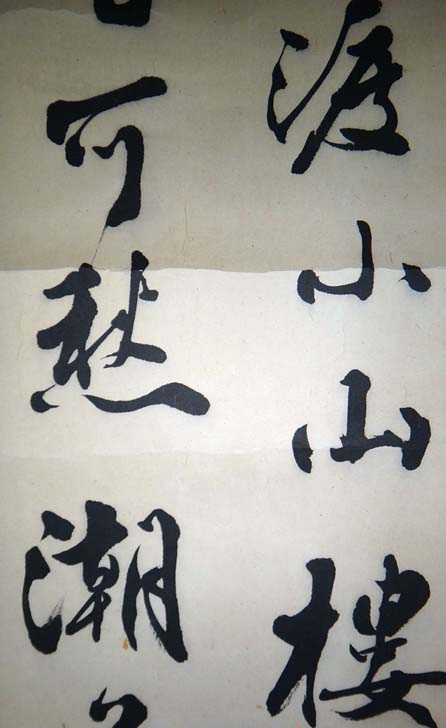 渡小山樓
可愁潮